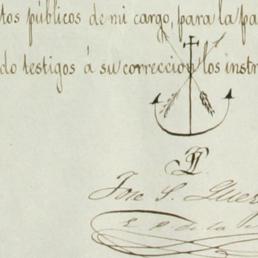 tos públicos de mi cargo, para la pa
do testigos á su correccion los instr
Jose S. Guer